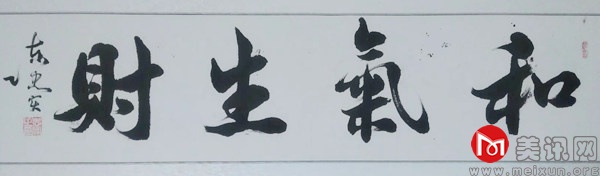 和氣生財
陈忠实
美讯网
www.meixun.org